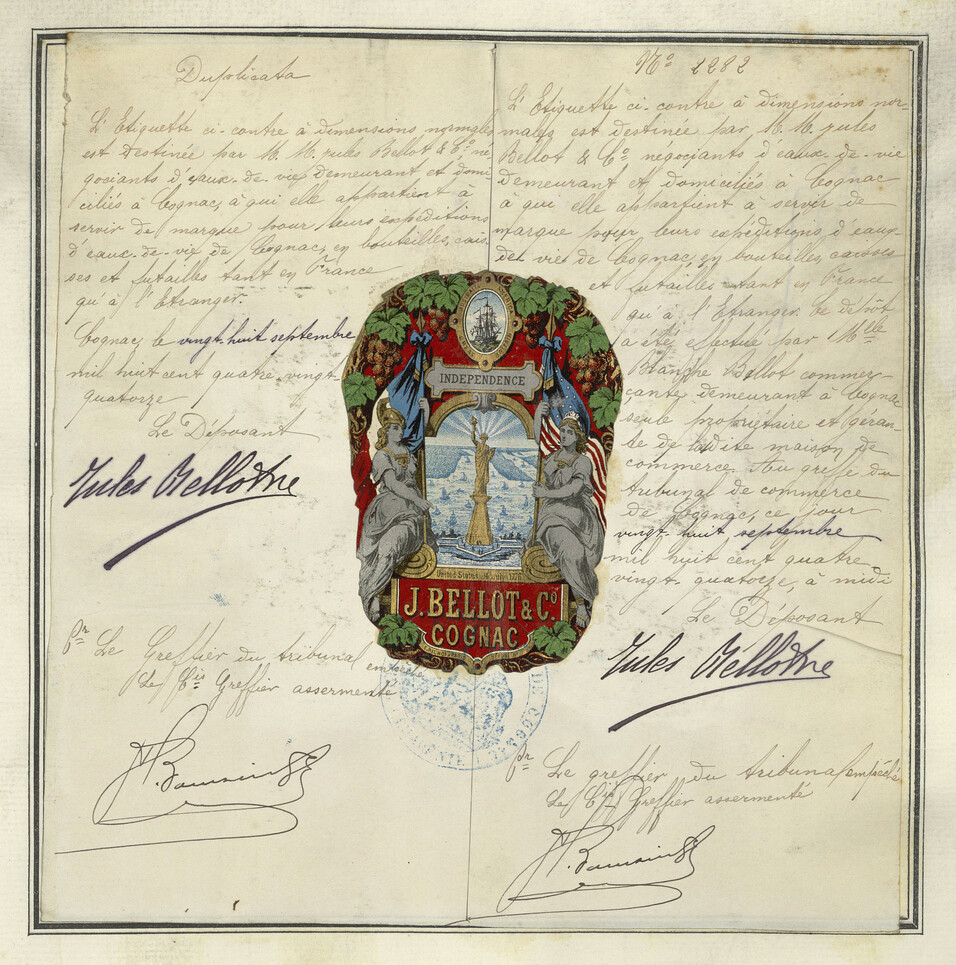 Duplicata
L'Etiquette ci-contre à dimensions normales
est destinée par M. M. Jules Bellot & Cº né-
gociants d'eaux-de-vie demeurant et domi-
ciliés à Cognac, à qui elle appartient à
servir de marque pour leurs expéditions
d'eaux-de-vie de Cognac, en bouteilles, cais-
ses et futailles tant en France
qu'à l'Etranger.
Cognac, le vingt-huit septembre
mil huit cent quatre-vingt-
quatorze
Le Déposant
Jules Bellot
Pr Le Greffier du tribunal empêché
Le Cis Greffier assermenté
Nº 2282
L'Etiquette ci-contre à dimensions nor-
males, est destinée par M. M. Jules
Bellot & Cº négociants d'eaux-de-vie
demeurant et domiciliés à Cognac
a qui elle appartient à servir de
marque pour leurs expéditions d'eaux-
de-vie de Cognac, en bouteilles, caisses
et futailles tant en France
qu'à l'Etranger. Ce dépôt
a été effectué par Mlle
Blanche Bellot commer-
çante, demeurant à Cognac
seule propriétaire et géran-
te de ladite maison de
commerce. Au greffe du
tribunal de commerce
de Cognac, ce jour
vingt-huit septembre
mil huit cent quatre
vingt-quatorze, à midi
Le Déposant
Jules Bellot
Pr Le greffier du tribunal empêché
Le Cis Greffier assermenté
INDEPENDENCE
United States 4 July 1776
J. BELLOT & Cº
COGNAC